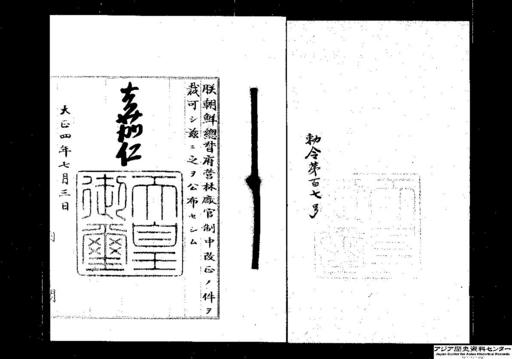 勅令第百七号
朕朝鮮總督府營林廠官制中改正ノ件ヲ
裁可シ茲ニ之ヲ公布セシム
嘉仁
天皇
御璽
大正四年七月三日
アジア歴史資料センター
Japan Center for Asian Historical Records